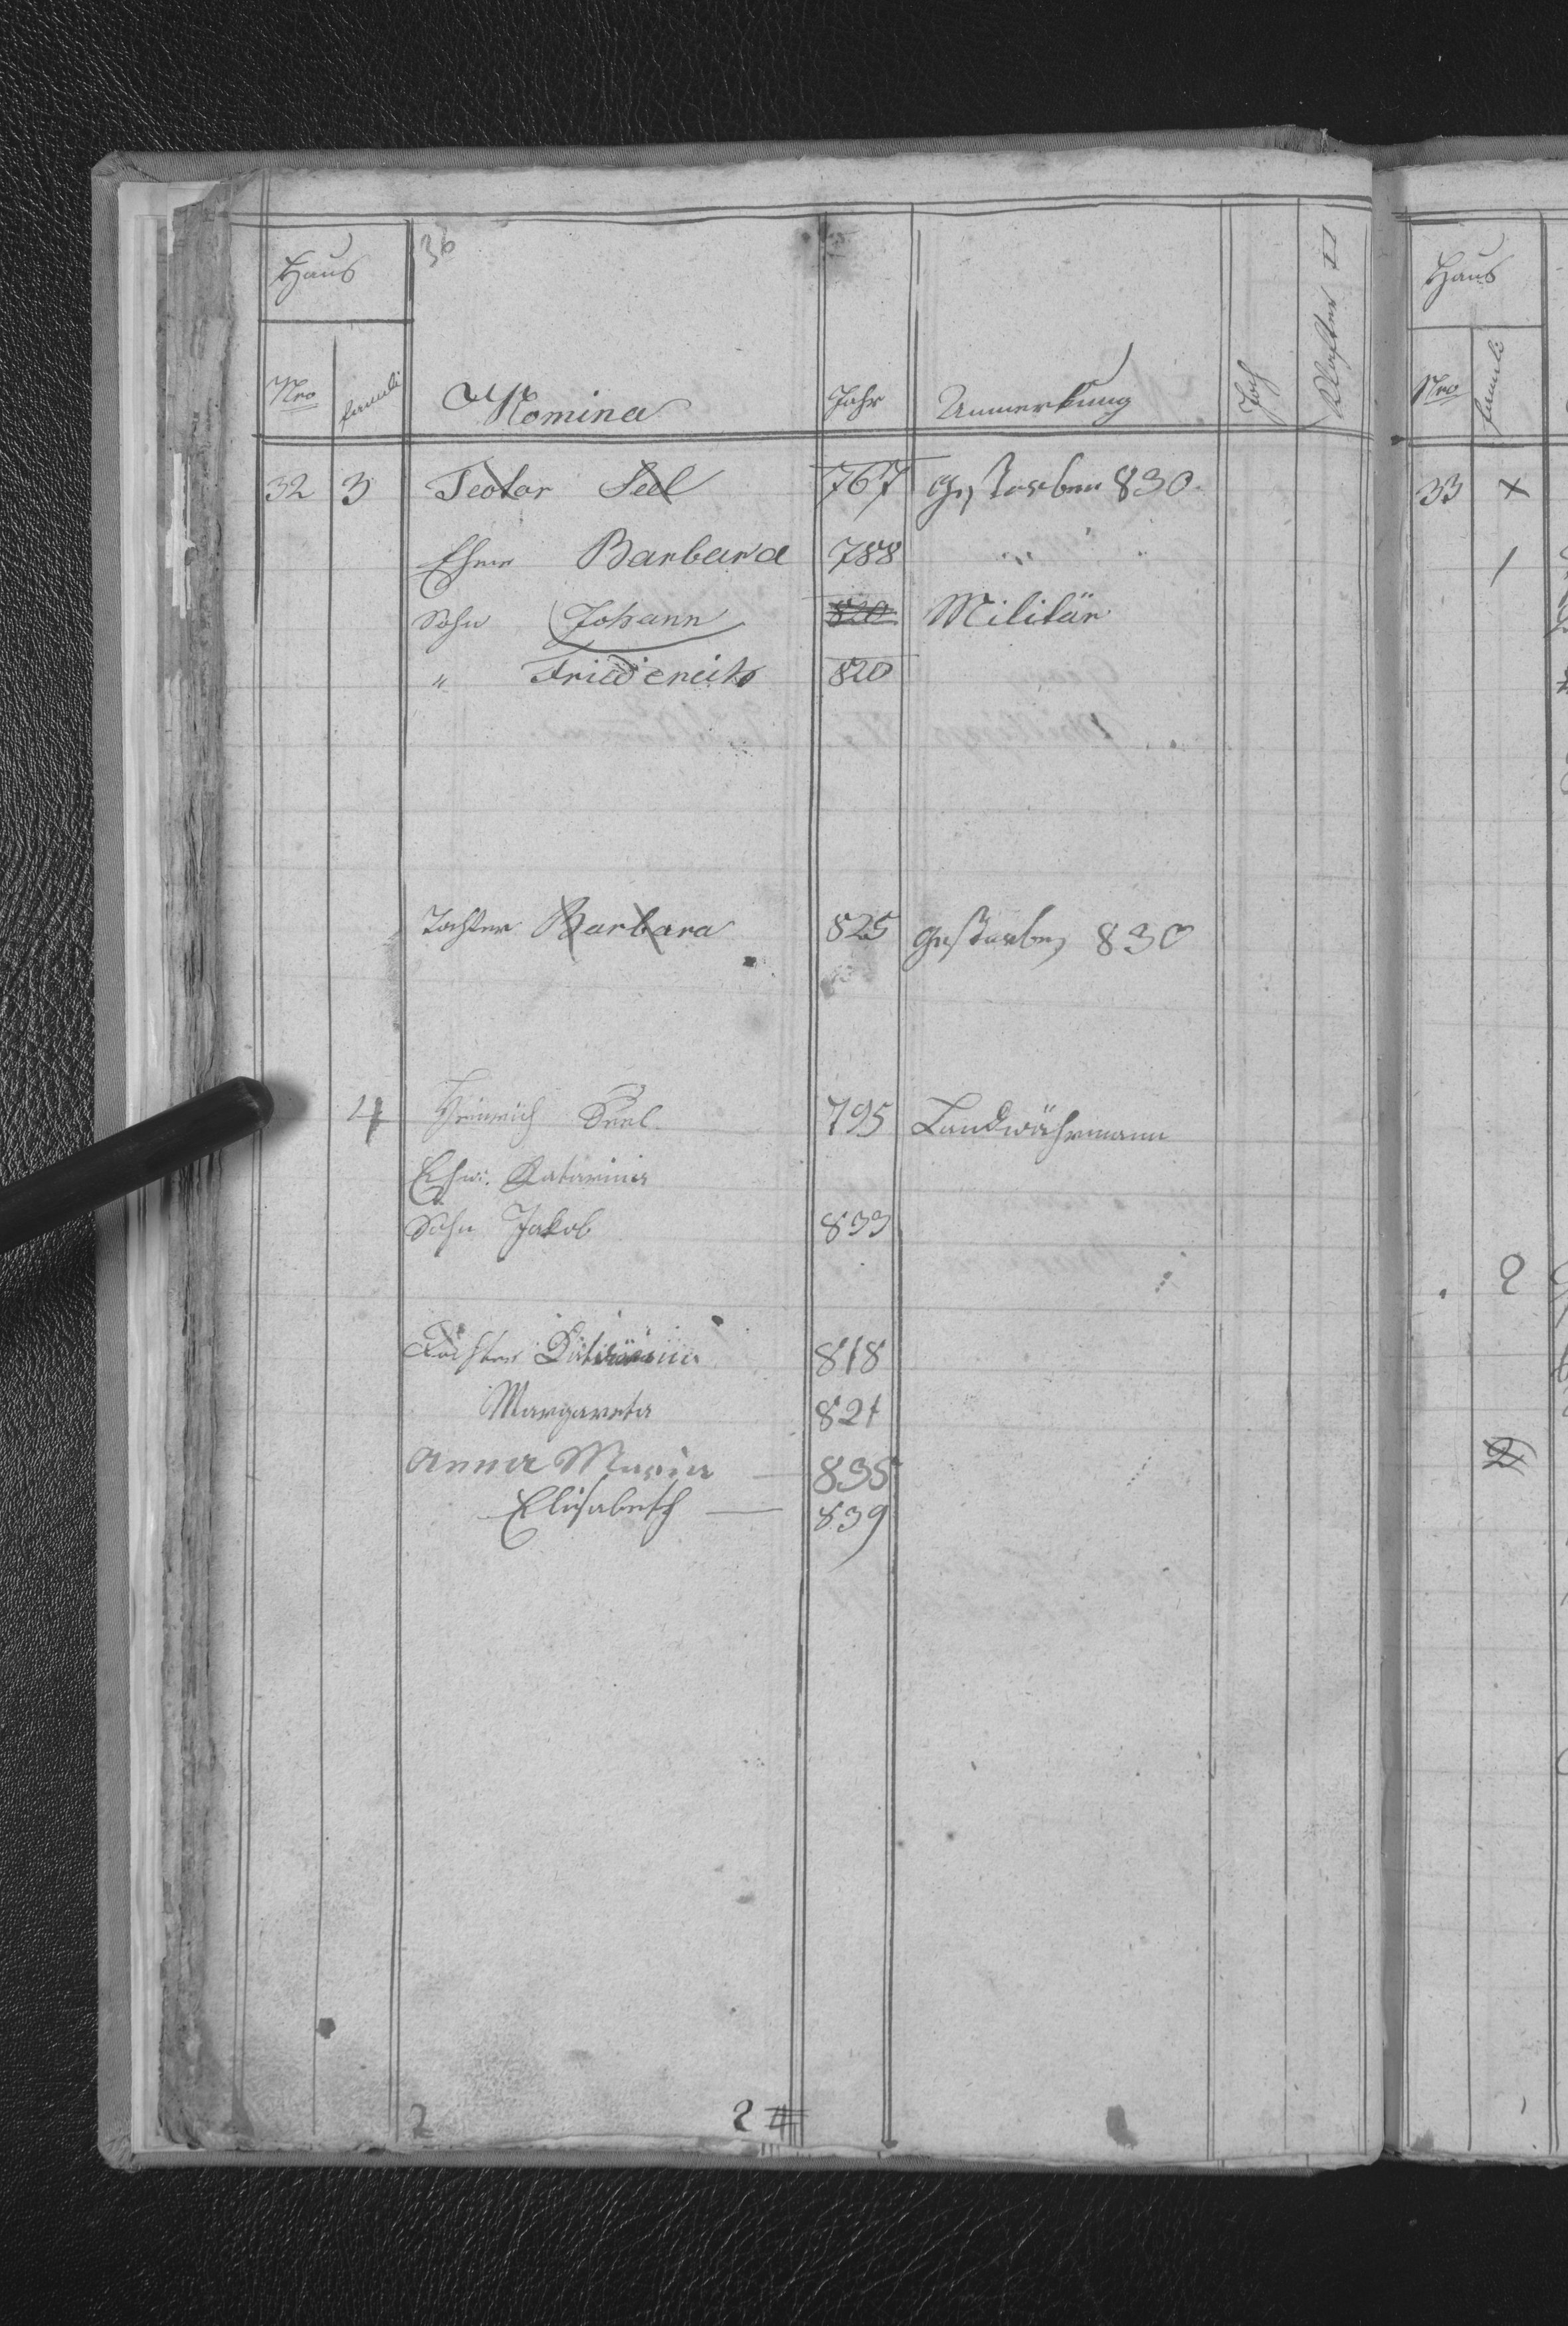 36
Haus
Nro famili Nomina Jahr Anmerkung Joch Klafter
32 3 Teotor Seel 767 gestorben 830
Ehew Barbara 788 " "
Sohn Johann 820 Militär
" Friedereich 820
Tochter Barbara 825 gestorben 830
4 Heinrich Seel 795 Landwährmann
Ehw: Katarina
Sohn Jakob 833
Tochter Katarina 818
Margareta 821
Anna Maria — 835
Elisabeth — 839
2 2
Haus
Nro famili
33 x
1
2
2